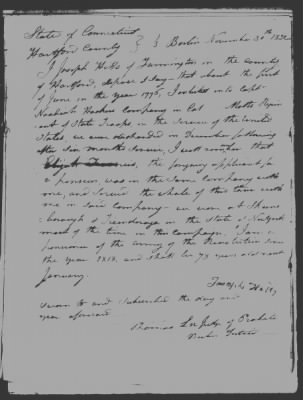 State of Connecticut
Hartford County } § Berlin November 30th 1832
I Joseph Hills of Farmington in the county
of Hartford, depose & say that about the first
of June in the year 1778, I enlisted into Capt
Company in Col Regim
ent of State Troops in the service of the United
States, we were discharged in December following
after six months service, I will certify that
the foregoing applicant for
a pension, was in the same Company with
me, and served the whole of the time with
me in said Company - we were at
& Ticonderoga in the State of New York
most of the time in this campaign. I am a
pensioner of the army of the Revolution since
the year 1818, and shall be 73 years old next
January.
Joseph Hills
sworn to and subscribed the day and
year aforesaid
Thomas Lee Judge of Probate